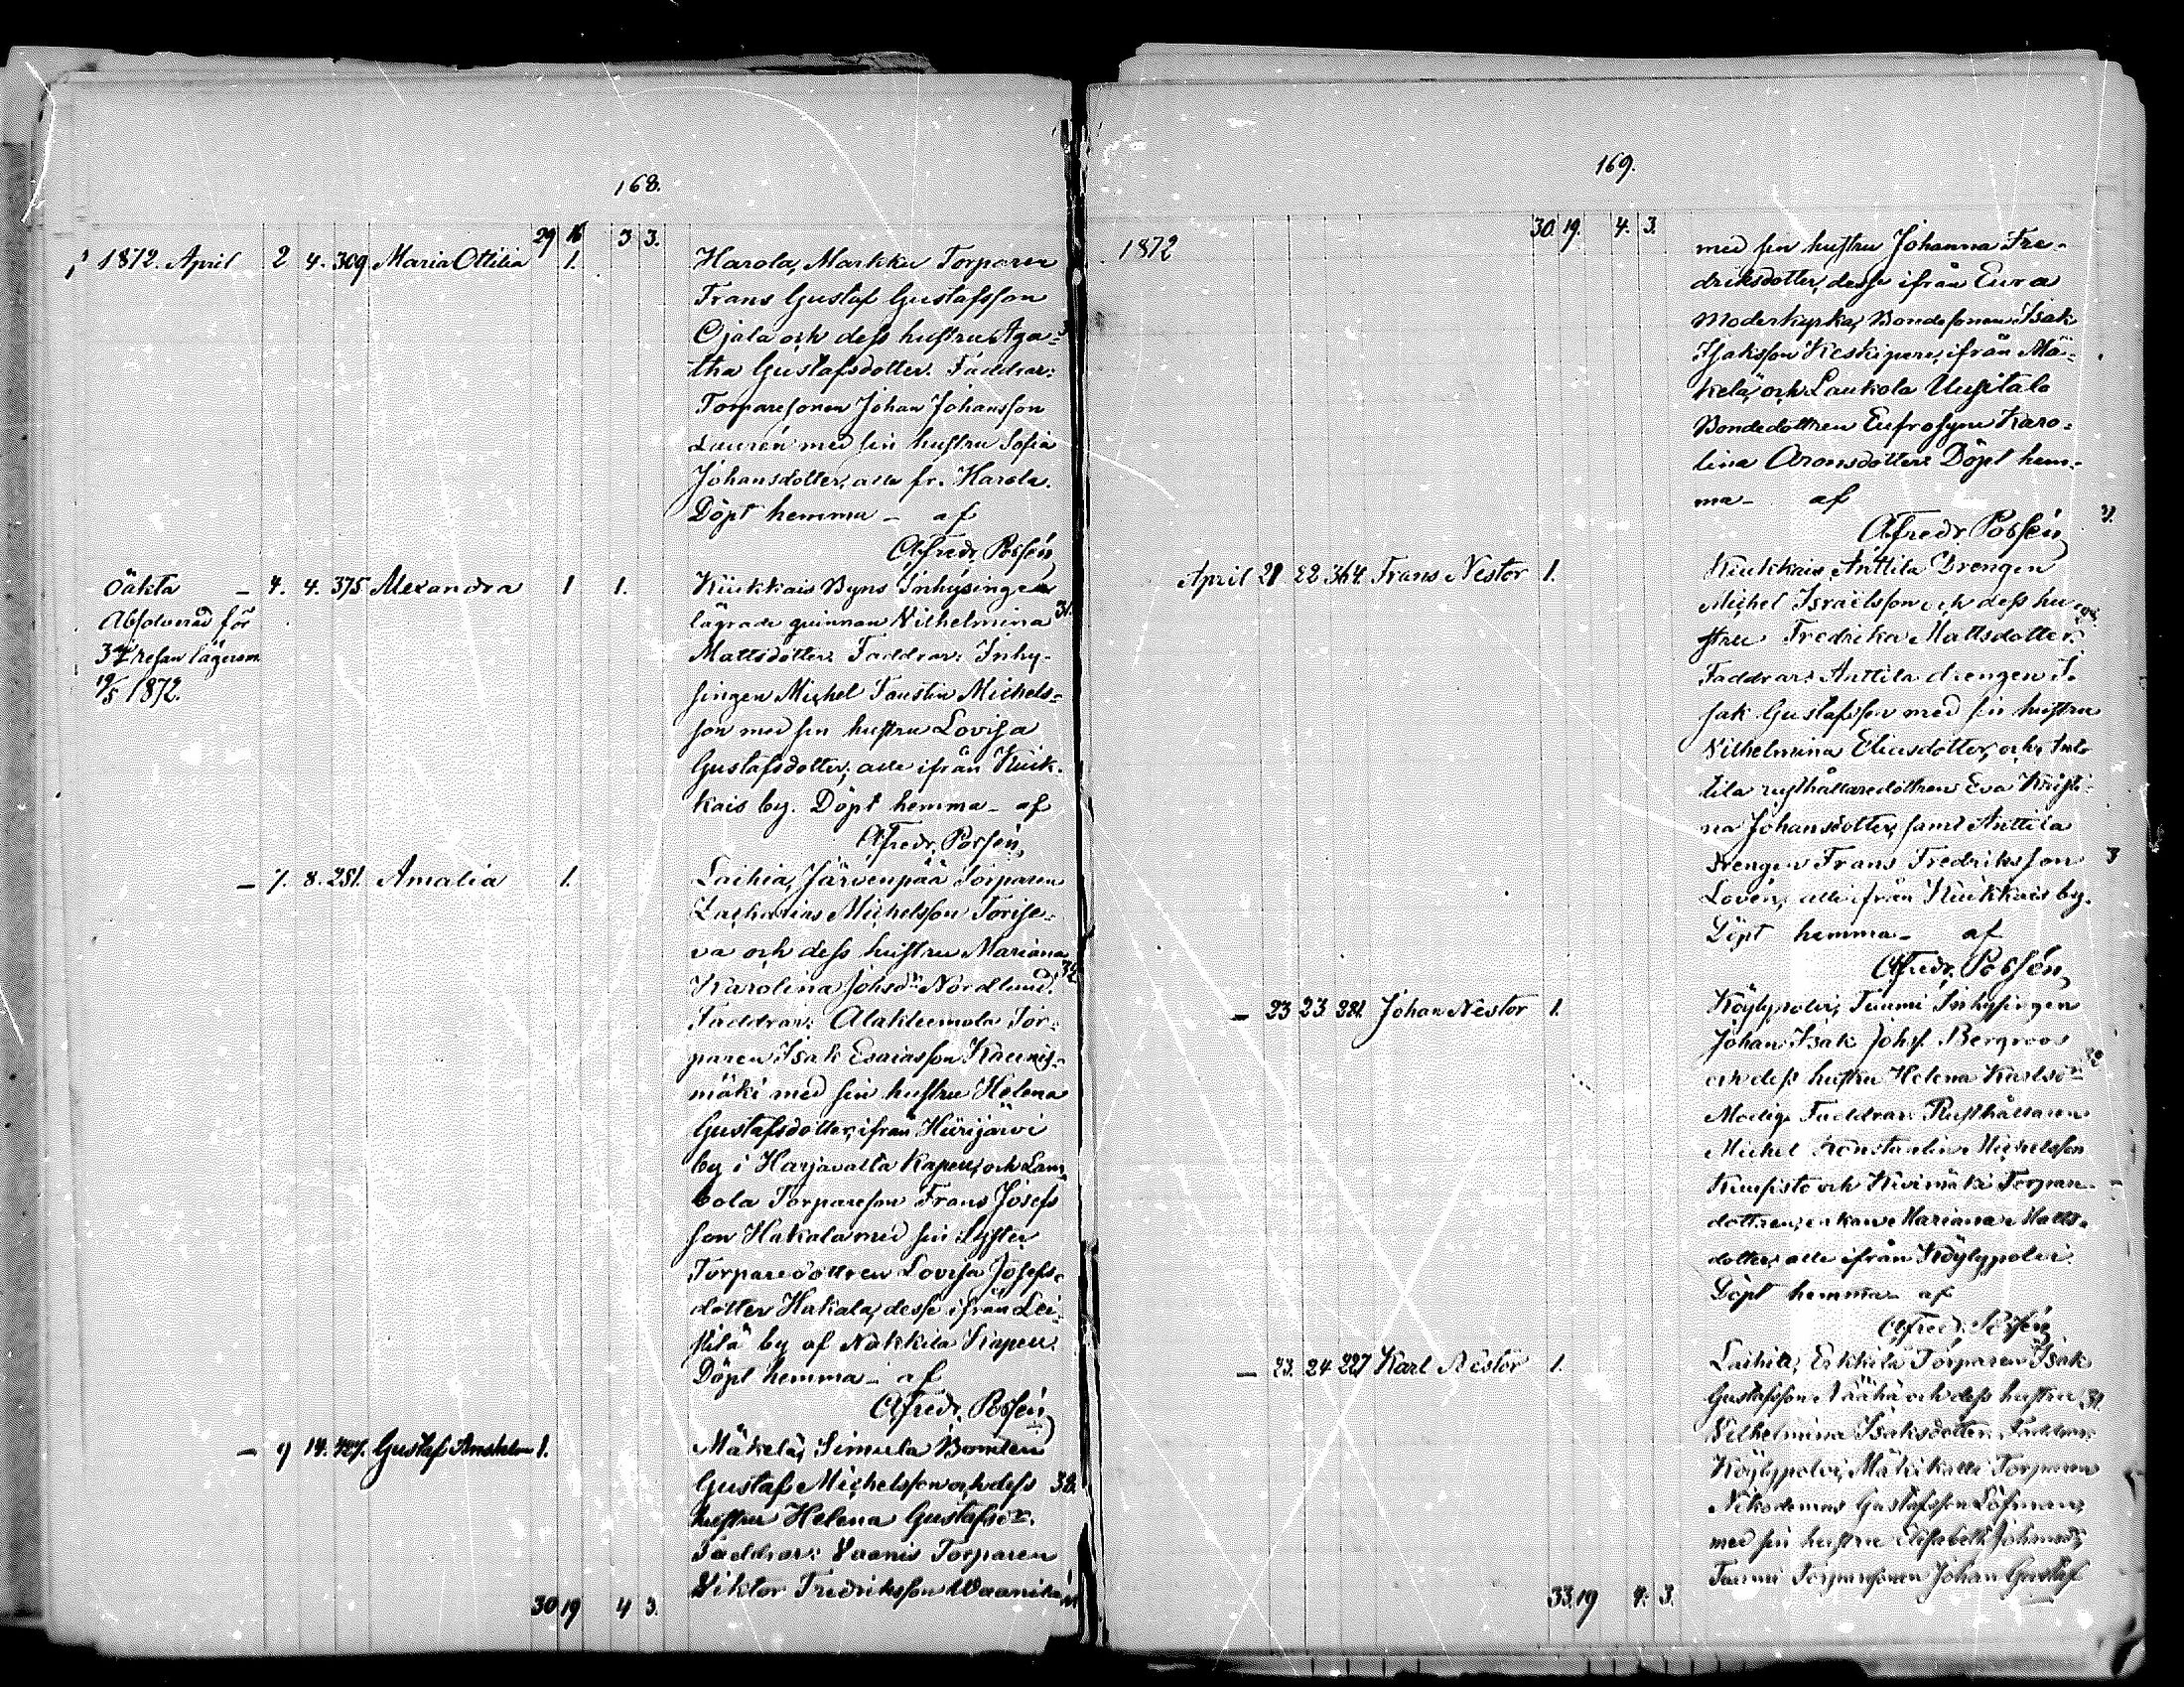 168.
29 16 3 3.
1872. April 2 4. 309 Maria Ottilia 1. Harola, Markku Torparen
Frans Gustaf Gustafsson
Ojala och dess hustru Aga=
tha Gustafsdotter. Faddrar:
Torparesonen Johan Johansson
Laurén med sin hustru Sofia
Johansdotter, alla fr. Harola.
Döpt hemma – af
Alfredr. Possén
Oäkta – 4. 4. 375. Alexandra 1 1. Kiukkais Byns Inhysinge
Absolverad för lägrade quinnan Wilhelmina 31.
3dje resan lägersm. Mattsdotter. Faddrar: Inhy-
19/5 1872. singen Michel Faustin Michels=
son med sin hustru Lovisa
Gustafsdotter, alla ifrån Kiuk-
kais by. Döpt hemma – af
Alfredr. Possén
– 7. 8. 281. Amalia 1. Laihia, Järvenpää Torparen
Zacharias Michelsson Torise-
va och dess hustru Mariana
Karolina Johsdr Nordlund.
Faddrar: Alakleemola Tor-
paren Isak Esaiasson Kaunis-
mäki med sin hustru Helena
Gustafsdotter, ifrån Hiirijärvi
by i Harjavalta Kapell, och Lam
bola Torpareson Frans Josefs
son Hakala med sin Syster
Torparedottren Lovisa Josefs-
dotter Hakala, desse ifrån Lei-
stilä by af Nakkila Kapell.
Döpt hemma – af
Alfredr. Possén
– 9 14. 427. Gustaf Anshelm 1. Mäkelä, Simula Bonden
Gustaf Michelsson och dess 38.
hustru Helena Gustafsdr.
Faddrar: Vaanis Torparen
Viktor Fredriksson Waanila
30 19 4 3.
169.
30. 19. 4. 3.
1872 med sin hustru Johanna Fre-
driksdotter, desse ifrån Eura
Moderkyrka, Bondesonen Isak
Isaksson Keskipere, ifrån Mä-
kelä, och Laukola Uusitalo
Bondedottren Eufrosyne Karo-
lina Aronsdotter. Döpt hem-
ma – af
Alfredr. Possén
April 21 22 364. Frans Nestor 1. Kiukkais, Anttila Drengen
Michel Israelsson och dess hu
stru Fredrika Mattsdotter.
Faddrar: Anttila drengen I-
sak Gustafsson med sin hustru
Wilhelmina Eliasdotter, och
tila rusthållaredottren Eva Kristi-
na Johansdotter, samt Anttila
drengen Frans Fredriksson
Lovén, alla ifrån Kiukkais by.
Döpt hemma – af
Alfredr. Possén
– 23 23 281. Johan Nestor 1. Köylypolvi, Tuumi Inhysingen
Johan Isak Johss. Bergroos
och dess hustru Helena Karlsdr
Modig. Faddrar: Rusthållaren
Michel Konstantin Michelsson
Kuusisto och Kivimäki Torpare-
dottren, enkan Mariana Matts-
dotter, alla ifrån Köylypolvi.
Döpt hemma – af
Alfredr. Possén
– 23. 24 227 Karl Nestor 1. Laihia, Erkkilä Torparen Isak
Gustafsson Näähä och dess hustru 31.
Wilhelmina Isaksdotter. Faddrar:
Köylypolvi, Mäkikalli Torparen
Nikodemus Gustafsson Löfman,
med sin hustru Elisabeth Johansdr,
Tuumi Torparesonen Johan Gustaf
33. 19 4. 3.